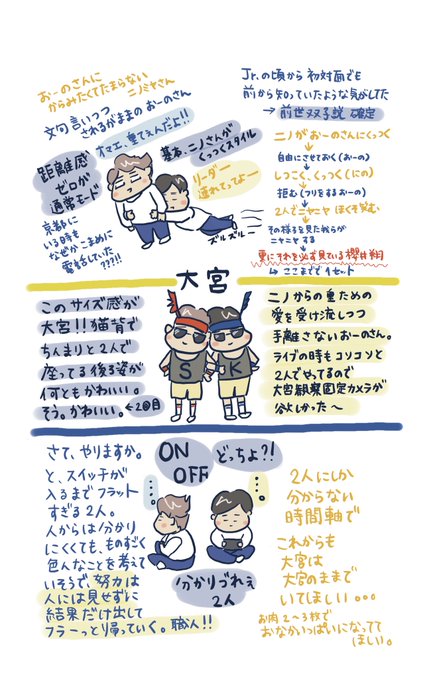 おーのさんに
からみたくてたまらない
ニノミヤさん
文句言いつつ
されるがままの おーのさん
オマエ、重てぇんだよ!!
距離感
ゼロが
通常モード
京都に
いる時も
なぜかこまめに
電話していた
???!!
基本、ニノさんが
くっつくスタイル
リーダー
連れてってよー
ズルズルー
Jr.の頃から初対面でも
前から知っていたような気がしてた
→ 前世双子説 確定
ニノがおーのさんにくっつく
↓
自由にさせておく(おーの)
↓
しつこく、くっつく(にの)
↓
拒む(フリをするおーの)
↓
2人でニヤニヤ ほくそ笑む
↓
その様子を見た彼らが
ニヤニヤする
↓
更にそれを必ず見ている櫻井翔
↳ ここまでで1セット
大宮
このサイズ感が
大宮!! 猫背で
ちんまりと2人で
座ってる後ろ姿が
何ともかわいい。
そう。かわいい。←2回目
S K
ニノからの重ための
愛を受け流しつつ
手離さないおーのさん。
ライブの時もコソコソと
2人でやってるので
大宮観察固定カメラが
欲しかった〜
さて、やりますか。
と、スイッチが
入るまでフラット
すぎる2人。
人からは分かり
にくくても、ものすごく
色んなことを考えて
いそうで、努力は
人には見せずに
結果だけ出して
フラーっとり帰っていく。職人!!
ON
OFF
どっちよ?!
...
...
分かりづれぇ
2人
2人にしか
分からない
時間軸で
これからも
大宮は
大宮のままで
いてほしい。。。
お肉 2〜3枚で
おなかいっぱいになってて
ほしい。